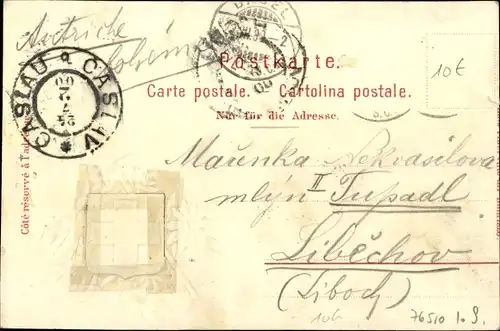 Autriche
Bohême
BASEL
CASLAU * CASLAV *
24 2 00
10€
Postkarte.
Carte postale. Cartolina postale.
Nur für die Adresse.
Côté réservé à l'adresse
Mařenka Nekvasilova
mlýn II Tupadl
Liběchov
(Liboch)
106
76510 1.9.